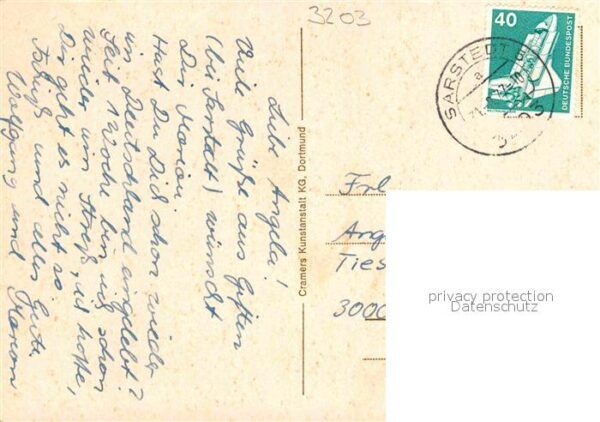 3203
Liebe Angela!
Viele Grüße aus Giften
(bei Sarstedt) wünscht
Dir Marion.
Hast Du Dich schon wieder
in Deutschland eingelebt?
Seit 1 Woche bin ich schon
wieder im Streß, ich hoffe,
Dir geht es nicht so.
Tschüß und alles Gute
Wolfgang und Marion
Cramers Kunstanstalt KG, Dortmund
40
DEUTSCHE BUNDESPOST
SARSTEDT
a
3203
Frl
Ang
Ties
3000
privacy protection
Datenschutz